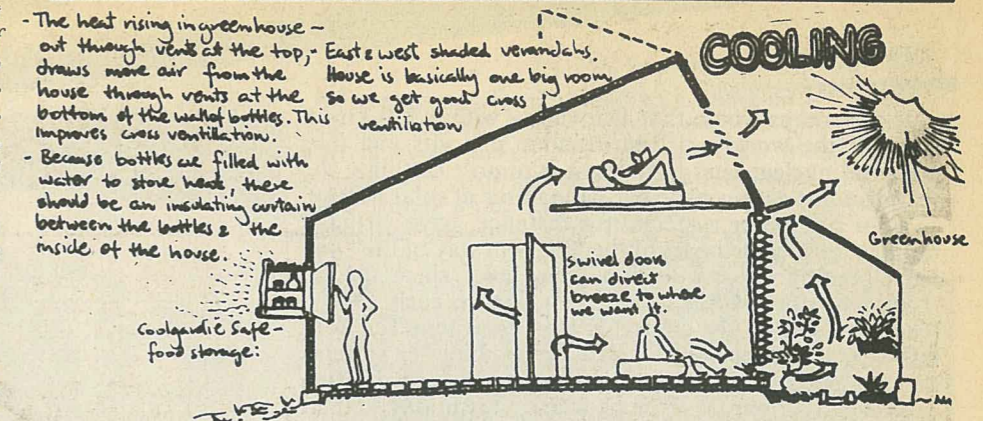 COOLING
- The heat rising in greenhouse -
out through vents at the top,
draws more air from the
house through vents at the
bottom of the wall of bottles. This
improves cross ventillation.
- Because bottles are filled with
water to store heat, there
should be an insulating curtain
between the bottles & the
inside of the house.
- East & west shaded verandahs.
House is basically one big room
so we get good cross
ventiliation
Greenhouse
Swivel doors
can direct
breeze to where
we want it.
Coolgardie Safe -
food storage: